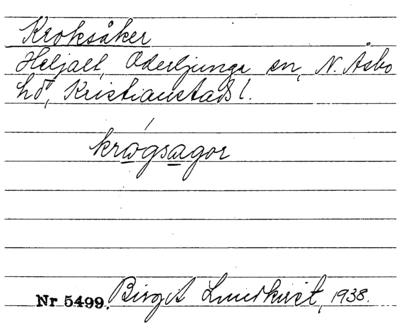 Kroksåker
Heljalt, Oderljunga sn, N. Åsbo
hd, Kristianstads l.
krǻgsagor
Nr 5499. Birgit Lundkvist, 1938.